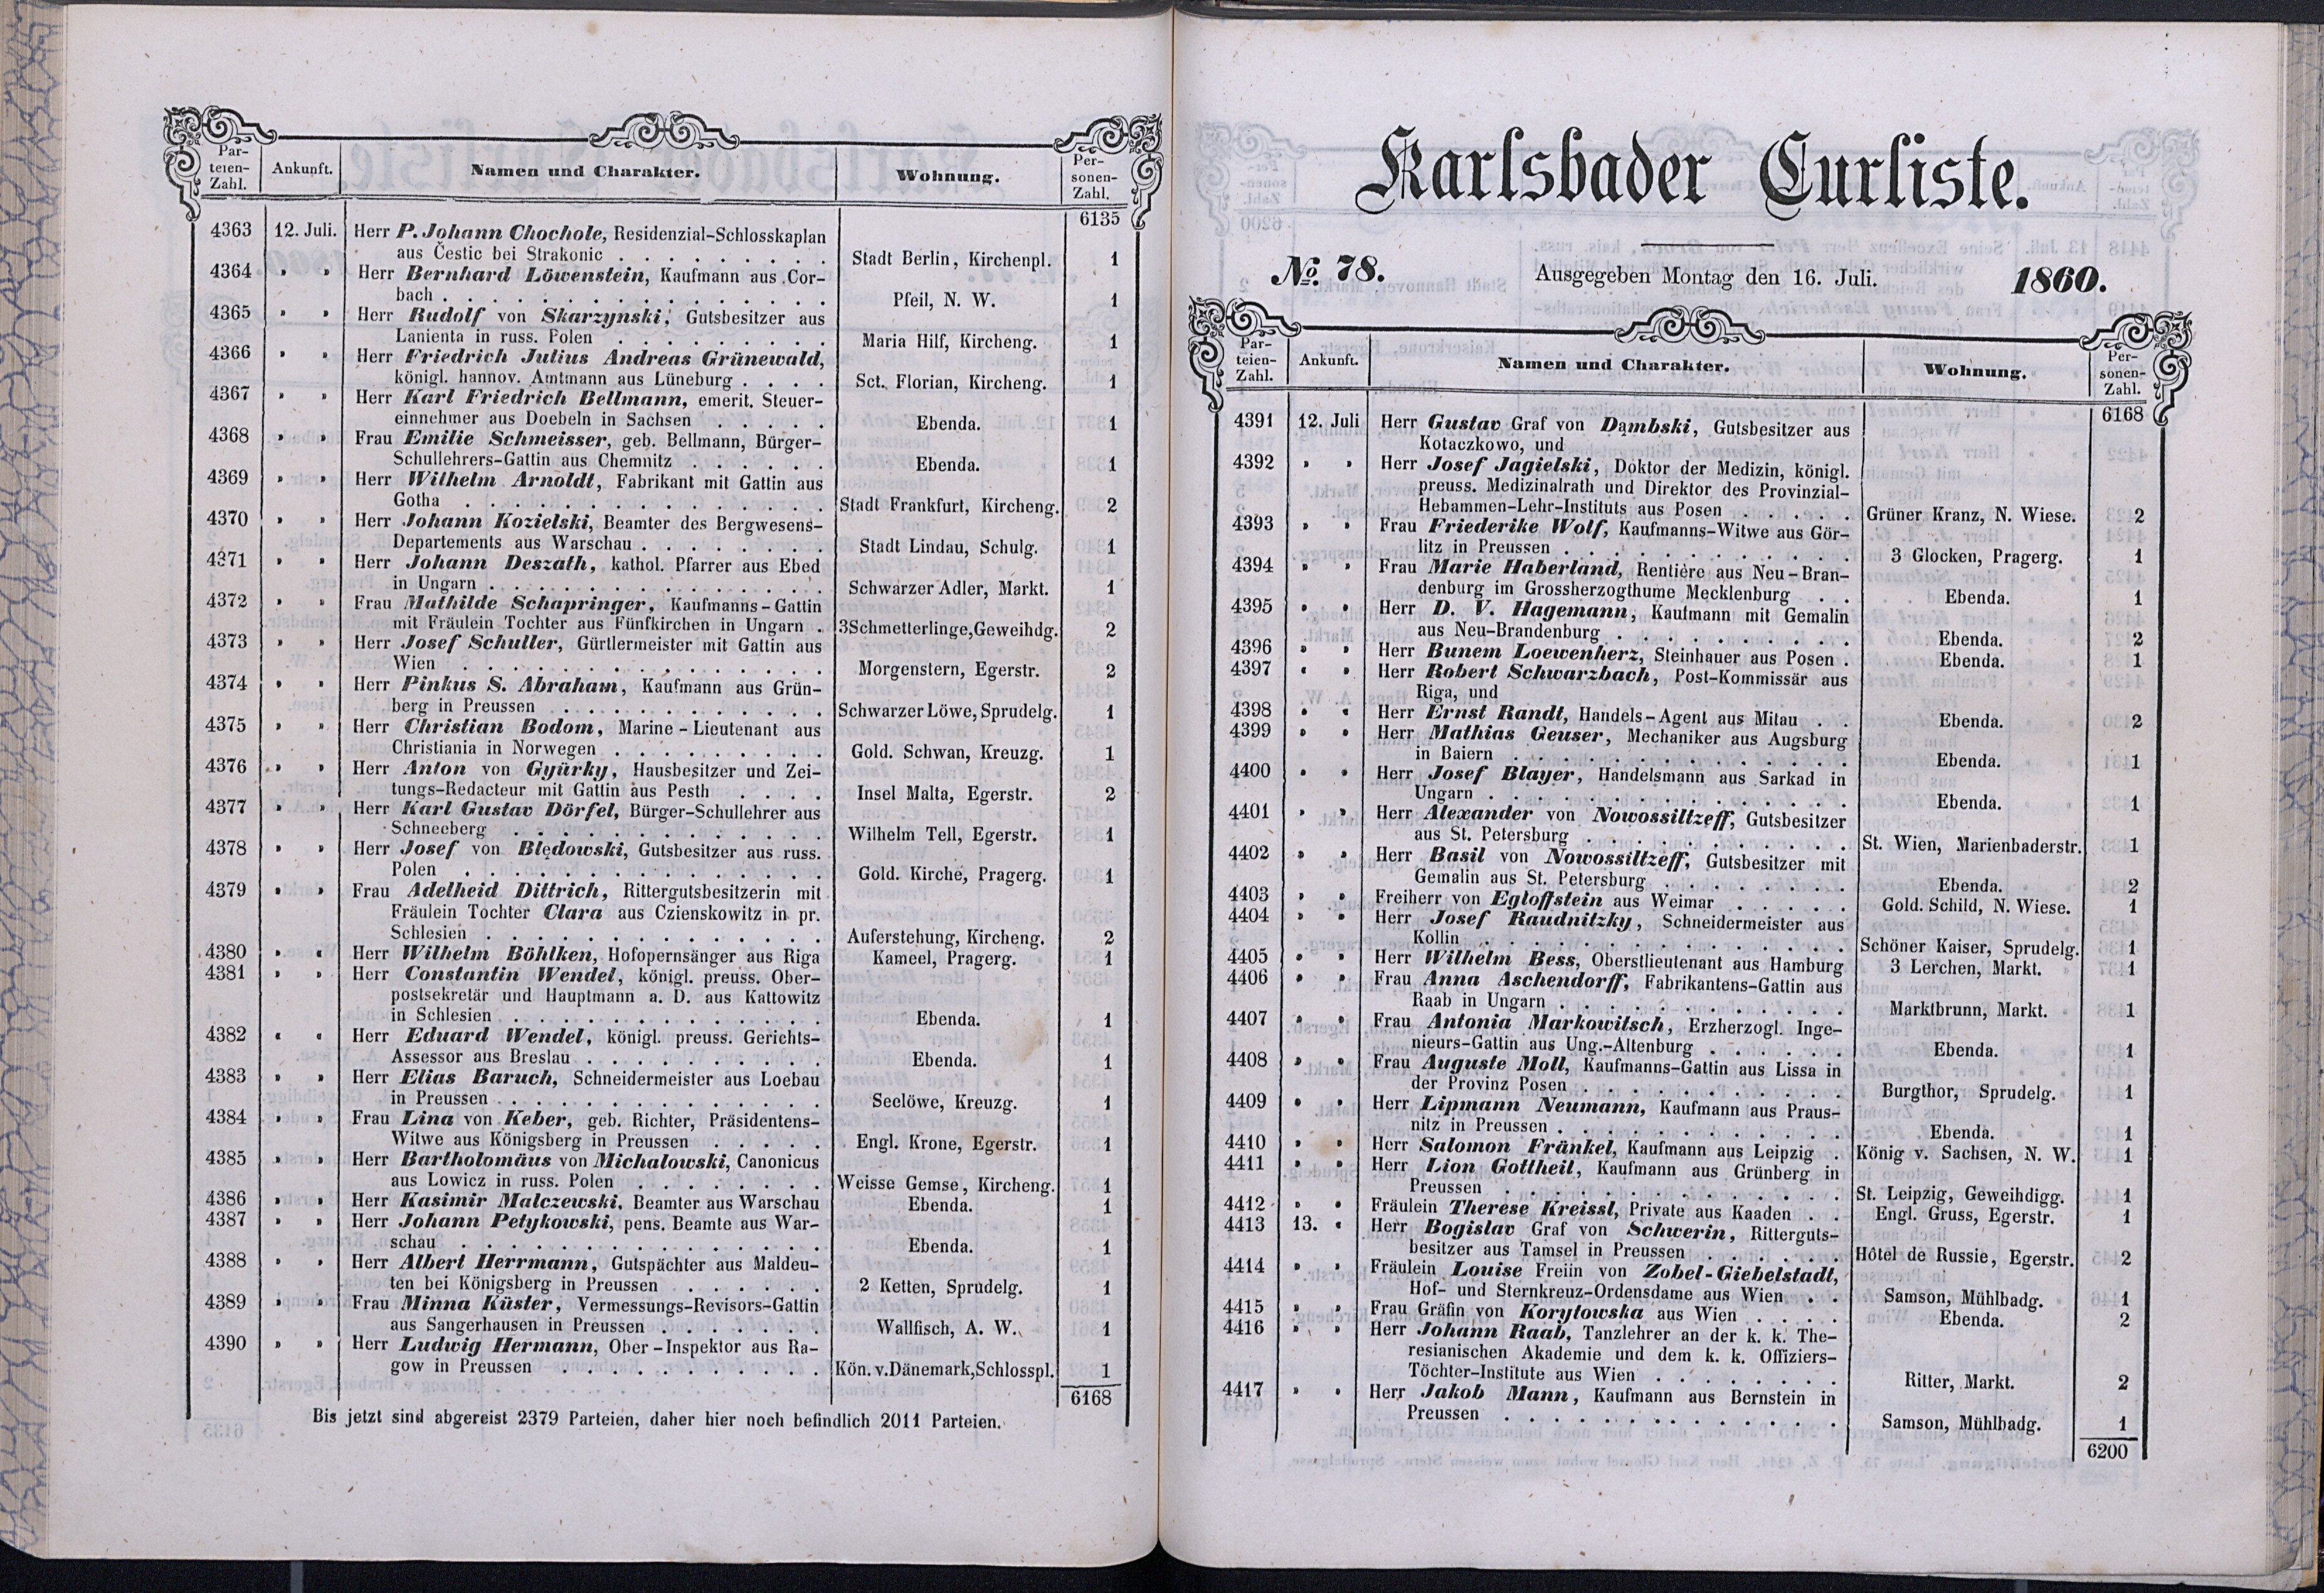 Par-
teien-
Zahl.
Ankunft.
Namen und Charakter.
Wohnung.
Per-
sonen-
Zahl.
6135
4363 12. Juli. Herr P. Johann Chochole, Residenzial-Schlosskaplan
aus Čestic bei Strakonic . . . . . . . . . Stadt Berlin, Kirchenpl. 1
4364 » » Herr Bernhard Löwenstein, Kaufmann aus Cor-
bach . . . . . . . . . . . . . . . . Pfeil, N. W. 1
4365 » » Herr Rudolf von Skarzynski, Gutsbesitzer aus
Lanienta in russ. Polen . . . . . . . . . Maria Hilf, Kircheng. 1
4366 » » Herr Friedrich Julius Andreas Grünewald,
königl. hannov. Amtmann aus Lüneburg . . . . Sct. Florian, Kircheng. 1
4367 » » Herr Karl Friedrich Bellmann, emerit. Steuer-
einnehmer aus Doebeln in Sachsen . . . . . Ebenda. 1
4368 » » Frau Emilie Schmeisser, geb. Bellmann, Bürger-
Schullehrers-Gattin aus Chemnitz . . . . . . Ebenda. 1
4369 » » Herr Wilhelm Arnoldt, Fabrikant mit Gattin aus
Gotha . . . . . . . . . . . . . . . Stadt Frankfurt, Kircheng. 2
4370 » » Herr Johann Kozielski, Beamter des Bergwesens-
Departements aus Warschau . . . . . . . . Stadt Lindau, Schulg. 1
4371 » » Herr Johann Deszath, kathol. Pfarrer aus Ebed
in Ungarn . . . . . . . . . . . . . . Schwarzer Adler, Markt. 1
4372 » » Frau Mathilde Schapringer, Kaufmanns-Gattin
mit Fräulein Tochter aus Fünfkirchen in Ungarn . 3 Schmetterlinge, Geweihdg. 2
4373 » » Herr Josef Schuller, Gürtlermeister mit Gattin aus
Wien . . . . . . . . . . . . . . . Morgenstern, Egerstr. 2
4374 » » Herr Pinkus S. Abraham, Kaufmann aus Grün-
berg in Preussen . . . . . . . . . . . Schwarzer Löwe, Sprudelg. 1
4375 » » Herr Christian Bodom, Marine-Lieutenant aus
Christiania in Norwegen . . . . . . . . . Gold. Schwan, Kreuzg. 1
4376 » » Herr Anton von Gyürky, Hausbesitzer und Zei-
tungs-Redacteur mit Gattin aus Pesth . . . . Insel Malta, Egerstr. 2
4377 » » Herr Karl Gustav Dörfel, Bürger-Schullehrer aus
Schneeberg . . . . . . . . . . . . . Wilhelm Tell, Egerstr. 1
4378 » » Herr Josef von Blędowski, Gutsbesitzer aus russ.
Polen . . . . . . . . . . . . . . . Gold. Kirche, Pragerg. 1
4379 » » Frau Adelheid Dittrich, Rittergutsbesitzerin mit
Fräulein Tochter Clara aus Czienskowitz in pr.
Schlesien . . . . . . . . . . . . . . Auferstehung, Kircheng. 2
4380 » « Herr Wilhelm Böhlken, Hofopernsänger aus Riga Kameel, Pragerg. 1
4381 » » Herr Constantin Wendel, königl. preuss. Ober-
postsekretär und Hauptmann a. D. aus Kattowitz
in Schlesien . . . . . . . . . . . . . Ebenda. 1
4382 « « Herr Eduard Wendel, königl. preuss. Gerichts-
Assessor aus Breslau . . . . . . . . . . Ebenda. 1
4383 » » Herr Elias Baruch, Schneidermeister aus Loebau
in Preussen . . . . . . . . . . . . . Seelöwe, Kreuzg. 1
4384 » » Frau Lina von Keber, geb. Richter, Präsidentens-
Witwe aus Königsberg in Preussen . . . . . Engl. Krone, Egerstr. 1
4385 » » Herr Bartholomäus von Michalowski, Canonicus
aus Lowicz in russ. Polen . . . . . . . . Weisse Gemse, Kircheng. 1
4386 » » Herr Kasimir Malczewski, Beamter aus Warschau Ebenda. 1
4387 » » Herr Johann Petykowski, pens. Beamte aus War-
schau . . . . . . . . . . . . . . . Ebenda. 1
4388 » » Herr Albert Herrmann, Gutspächter aus Maldeu-
ten bei Königsberg in Preussen . . . . . . 2 Ketten, Sprudelg. 1
4389 » » Frau Minna Küster, Vermessungs-Revisors-Gattin
aus Sangerhausen in Preussen . . . . . . . Wallfisch, A. W. 1
4390 » » Herr Ludwig Hermann, Ober-Inspektor aus Ra-
gow in Preussen . . . . . . . . . . . Kön. v. Dänemark, Schlosspl. 1
6168
Bis jetzt sind abgereist 2379 Parteien, daher hier noch befindlich 2011 Parteien.
Karlsbader Curliste.
No. 78. Ausgegeben Montag den 16. Juli. 1860.
Par-
teien-
Zahl.
Ankunft.
Namen und Charakter.
Wohnung.
Per-
sonen-
Zahl.
6168
4391 12. Juli Herr Gustav Graf von Dąmbski, Gutsbesitzer aus
Kotaczkowo, und
4392 » » Herr Josef Jagielski, Doktor der Medizin, königl.
preuss. Medizinalrath und Direktor des Provinzial-
Hebammen-Lehr-Instituts aus Posen . . . . . Grüner Kranz, N. Wiese. 2
4393 » » Frau Friederike Wolf, Kaufmanns-Witwe aus Gör-
litz in Preussen . . . . . . . . . . . . 3 Glocken, Pragerg. 1
4394 » » Frau Marie Haberland, Rentière aus Neu-Bran-
denburg im Grossherzogthume Mecklenburg . . Ebenda. 1
4395 » » Herr D. V. Hagemann, Kaufmann mit Gemalin
aus Neu-Brandenburg . . . . . . . . . . Ebenda. 2
4396 » » Herr Bunem Loewenherz, Steinhauer aus Posen . Ebenda. 1
4397 « » Herr Robert Schwarzbach, Post-Kommissär aus
Riga, und
4398 » « Herr Ernst Randt, Handels-Agent aus Mitau . . Ebenda. 2
4399 » » Herr Mathias Geuser, Mechaniker aus Augsburg
in Baiern . . . . . . . . . . . . . . Ebenda. 1
4400 » » Herr Josef Blayer, Handelsmann aus Sarkad in
Ungarn . . . . . . . . . . . . . . . Ebenda. 1
4401 » » Herr Alexander von Nowossiltzeff, Gutsbesitzer
aus St. Petersburg . . . . . . . . . . . St. Wien, Marienbaderstr. 1
4402 » » Herr Basil von Nowossiltzeff, Gutsbesitzer mit
Gemalin aus St. Petersburg . . . . . . . . Ebenda. 2
4403 » » Freiherr von Egloffstein aus Weimar . . . . . Gold. Schild, N. Wiese. 1
4404 » » Herr Josef Raudnitzky, Schneidermeister aus
Kollin . . . . . . . . . . . . . . . Schöner Kaiser, Sprudelg. 1
4405 » » Herr Wilhelm Bess, Oberstlieutenant aus Hamburg 3 Lerchen, Markt. 1
4406 » » Frau Anna Aschendorff, Fabrikantens-Gattin aus
Raab in Ungarn . . . . . . . . . . . . Marktbrunn, Markt. 1
4407 » » Frau Antonia Markowitsch, Erzherzogl. Inge-
nieurs-Gattin aus Ung.-Altenburg . . . . . . Ebenda. 1
4408 » » Frau Auguste Moll, Kaufmanns-Gattin aus Lissa in
der Provinz Posen . . . . . . . . . . . Burgthor, Sprudelg. 1
4409 » » Herr Lipmann Neumann, Kaufmann aus Praus-
nitz in Preussen . . . . . . . . . . . . Ebenda. 1
4410 » » Herr Salomon Fränkel, Kaufmann aus Leipzig . . König v. Sachsen, N. W. 1
4411 » » Herr Lion Gottheil, Kaufmann aus Grünberg in
Preussen . . . . . . . . . . . . . . St. Leipzig, Geweihdigg. 1
4412 » » Fräulein Therese Kreissl, Private aus Kaaden . . Engl. Gruss, Egerstr. 1
4413 13. « Herr Bogislav Graf von Schwerin, Ritterguts-
besitzer aus Tamsel in Preussen . . . . . . Hôtel de Russie, Egerstr. 2
4414 » » Fräulein Louise Freiin von Zobel-Giebelstadt,
Hof- und Sternkreuz-Ordensdame aus Wien . . Samson, Mühlbadg. 1
4415 » » Frau Gräfin von Korytowska aus Wien . . . . Ebenda. 2
4416 » » Herr Johann Raab, Tanzlehrer an der k. k. The-
resianischen Akademie und dem k. k. Offiziers-
Töchter-Institute aus Wien . . . . . . . . Ritter, Markt. 2
4417 » » Herr Jakob Mann, Kaufmann aus Bernstein in
Preussen . . . . . . . . . . . . . . Samson, Mühlbadg. 1
6200